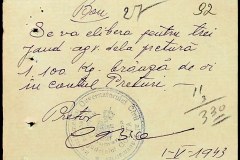 Bon 27 92
Se va elibera pentru trei
jand. age. dela pretură
1.100 kg. brânză de oi
in contul Preturi. —
11/2
330
Pretor
1-VI-1943